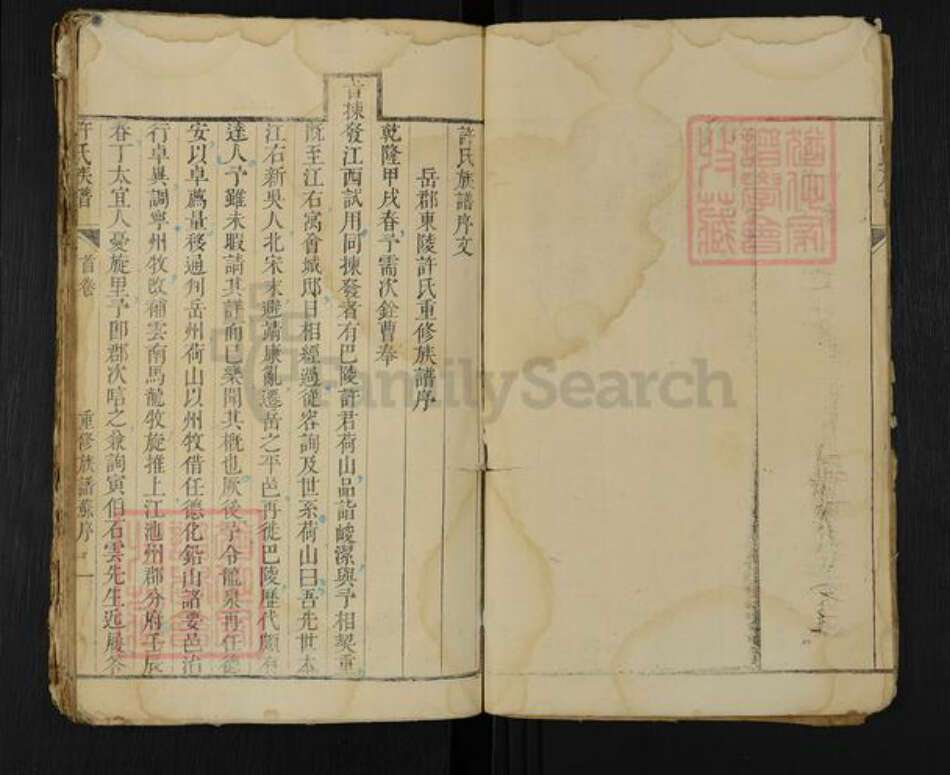 許氏族譜序文
岳郡東陵許氏重修族譜序
乾隆甲戌春予需次銓曹奉
旨揀發江西試用同揀發者有巴陵許君荷山品詣峻潔與予相契重
既至江右寓會城邸日相經過從容詢及世系荷山曰吾先世本
江右新吳人北宋末避靖康亂遷岳之平邑再徙巴陵歷代頗有
達人予雖未暇請其詳而已樂聞其概也厥後予令龍泉再任德
安以卓薦量移通判岳州荷山以州牧借任德化鉛山諸要邑治
行卓異調寧州牧改補雲南馬龍牧旋推上江池州郡分府壬辰
春丁太宜人憂旋里予卽郡次唁之兼詢寅伯石雲先生近履荅
許氏族譜 首卷 重修族譜舊序 一
FamilySearch